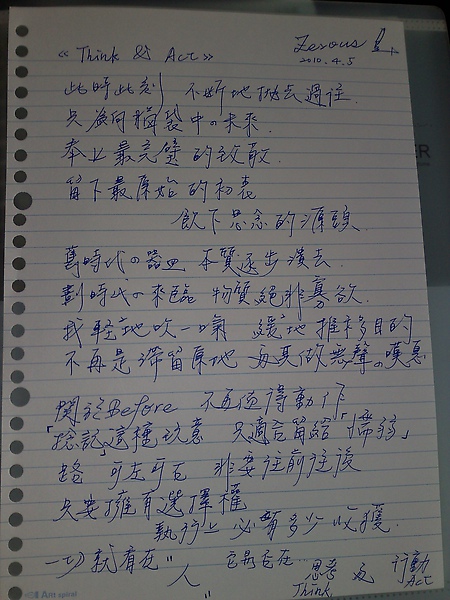 《Think & Act》
Zerous
2010.4.5
此時此刻 不斷地拋去過往.
只為向獨裂中の未來.
奉上最完璧的致敬.
留下最原始的初衷
飲下思念的源頭.
舊時代の器皿 本質逐步潰去.
劃時代の來臨 物質絕非寡欲.
我輕地吹一嗚 緩地推移目的
不再是滯留原地 與其做無聲の嘆息
關於Before 不再值得動作
「捻說」這種玩意 只適合留給「懦弱」
路 可左可右 非要往前往後
只要擁有選擇權
執行上 必有多少收穫.
一切就看在"人"
它是否在..思考 與 行動
Think Act
Ant spiral